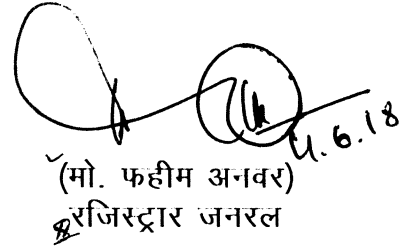 4.6.18
(मो. फहीम अनवर)
रजिस्ट्रार जनरल